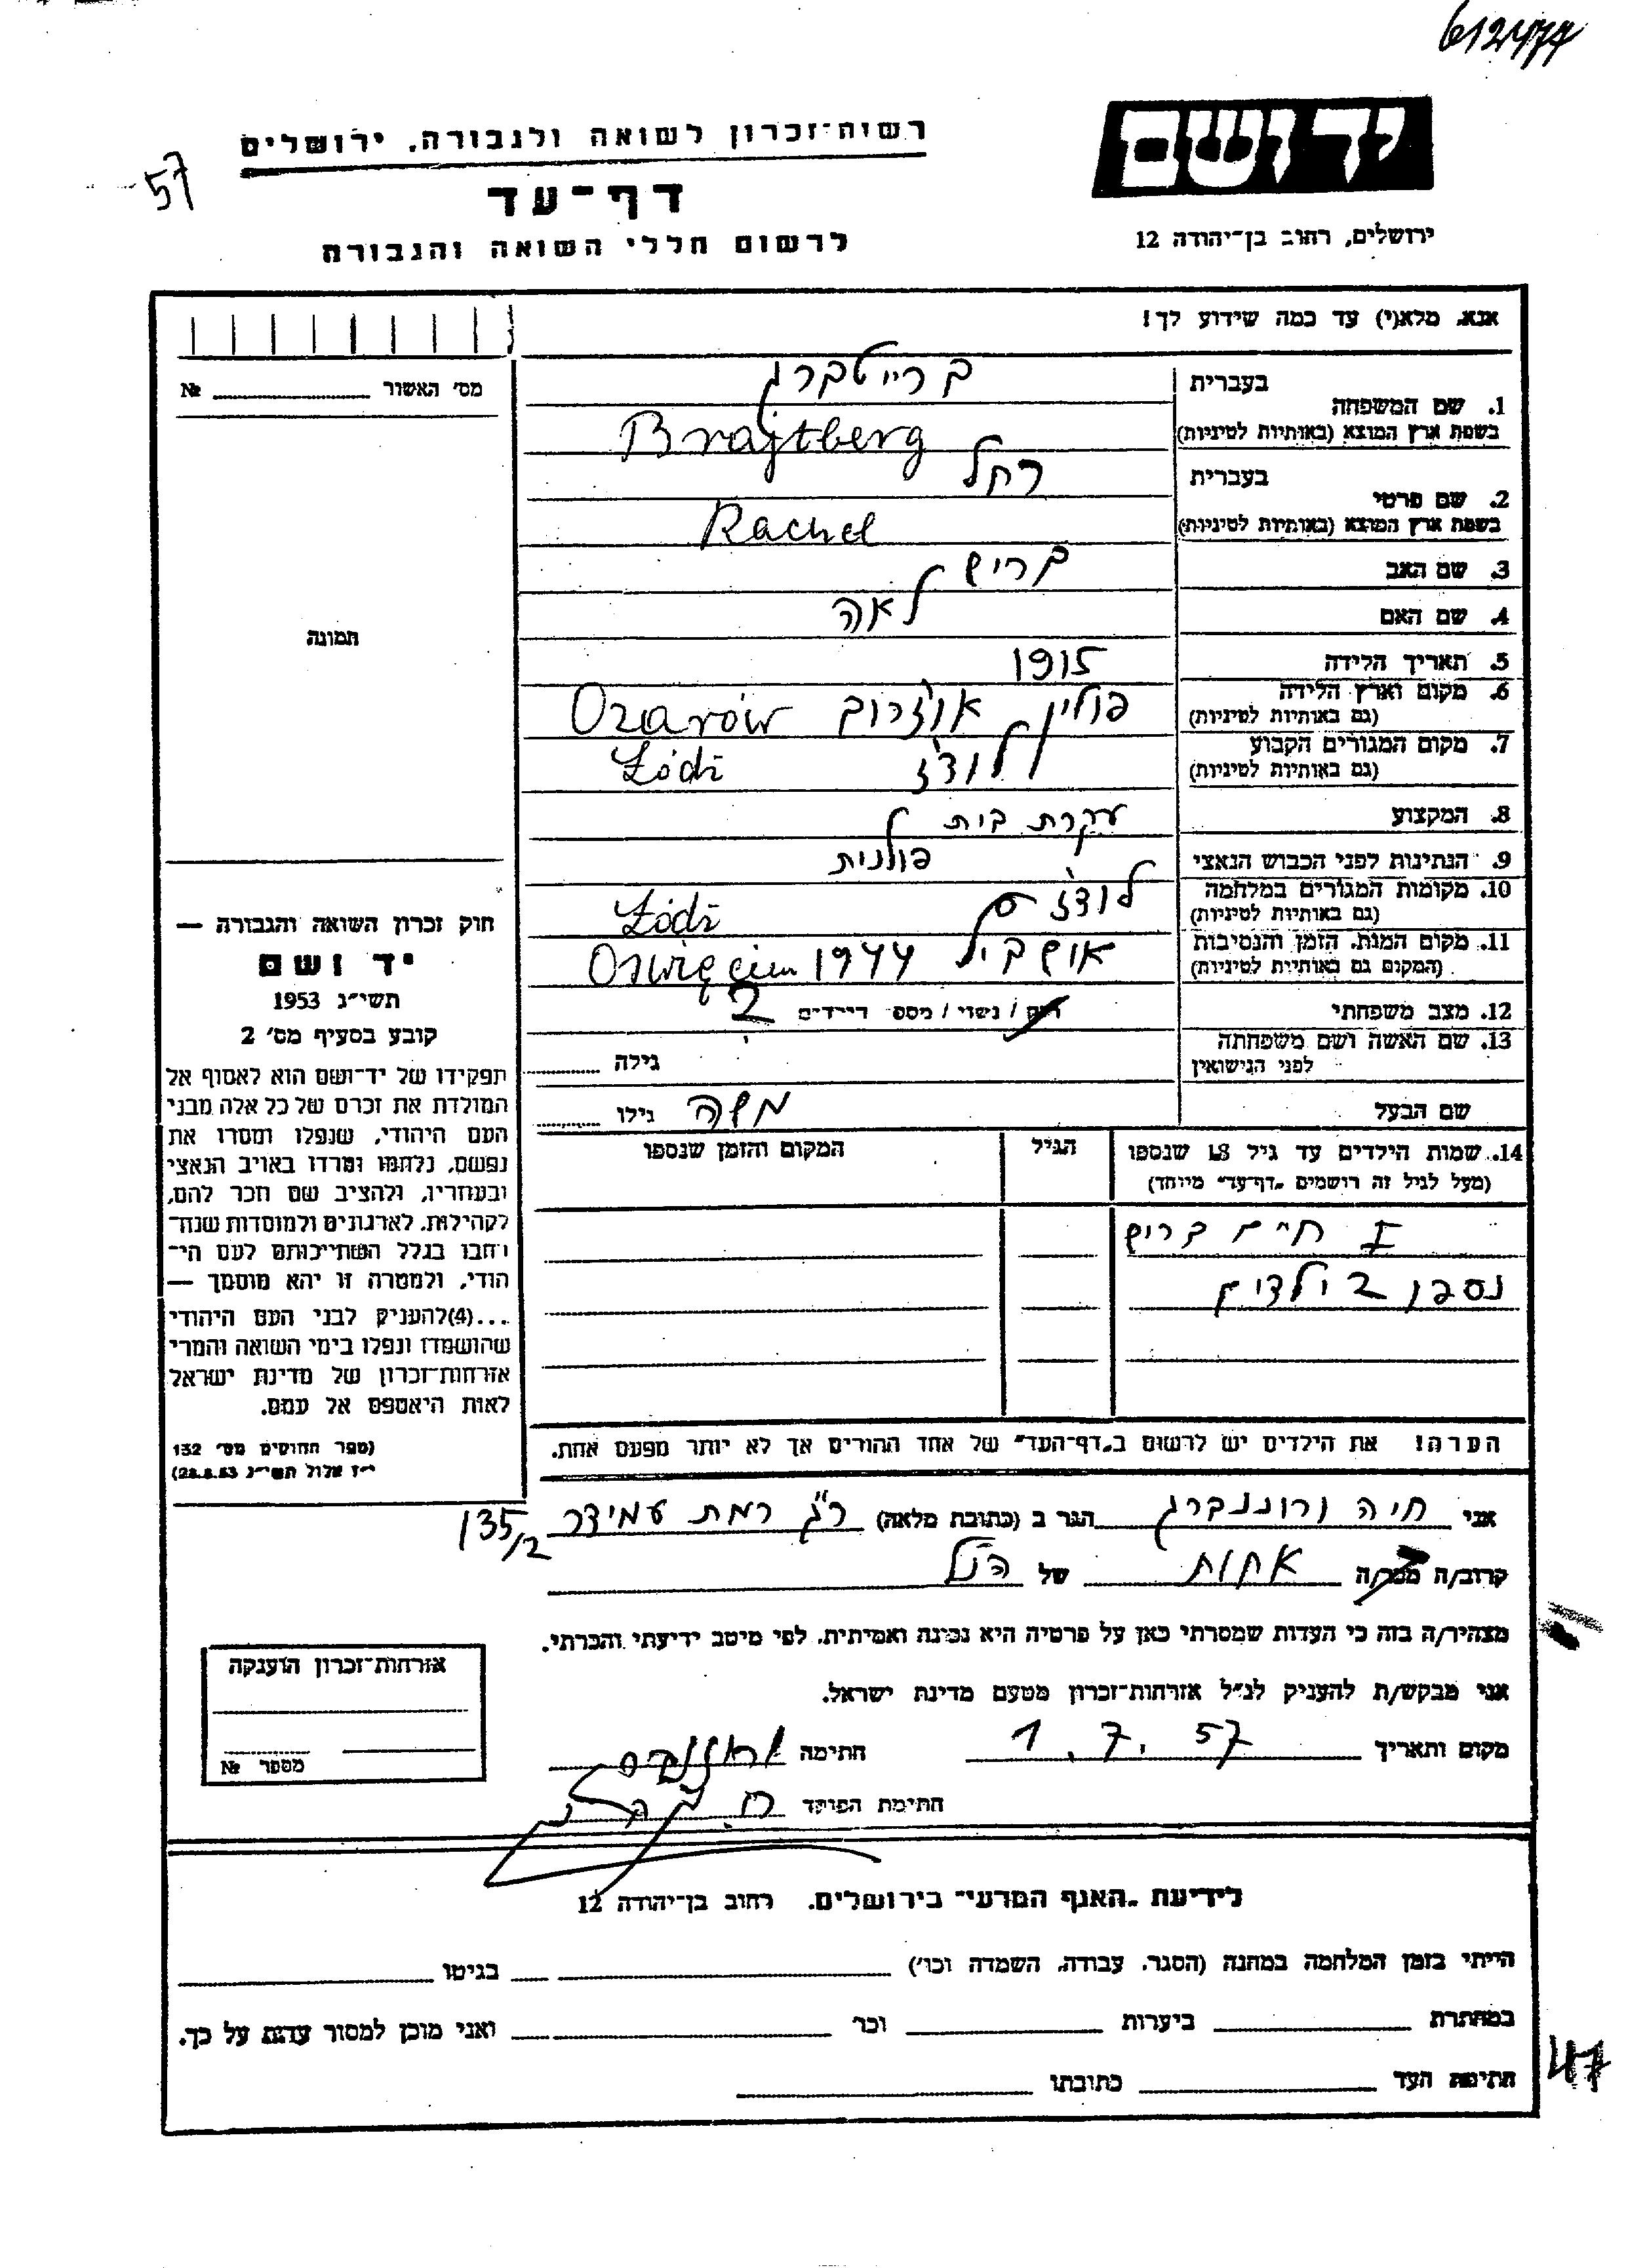 612477
57
רשות-זכרון לשואה ולגבורה, ירושלים
דף-עד
לרשום חללי השואה והגבורה
יד ושם
ירושלים, רחוב בן-יהודה 12
אנא, מלא(י) עד כמה שידוע לך!
מס' האשור № 
1. שם המשפחה
בעברית ברייטברג
בשפת ארץ המוצא (באותיות לטיניות) Brajtberg
2. שם פרטי
בעברית רחל
בשפת ארץ המוצא (באותיות לטיניות) Rachel
3. שם האב בריש
4. שם האם לאה
5. תאריך הלידה 1915
6. מקום וארץ הלידה פולין אוז'רוב Ozarów
(גם באותיות לטיניות)
7. מקום המגורים הקבוע לודז' Łódź
(גם באותיות לטיניות)
8. המקצוע עקרת בית
9. הנתינות לפני הכבוש הנאצי פולנית
10. מקומות המגורים במלחמה לודז' Łódź
(גם באותיות לטיניות)
11. מקום המות, הזמן והנסיבות 1944 Oświęcim
(המקום גם באותיות לטיניות)
12. מצב משפחתי רווק / נשוי / מספר הילדים 2
13. שם האשה ושם משפחתה
לפני הנישואין גילה
שם הבעל משה גילו
תמונה
חוק זכרון השואה והגבורה —
יד ושם
תשי"ג 1953
קובע בסעיף מס' 2
תפקידו של יד-ושם הוא לאסוף אל
המולדת את זכרם של כל אלה מבני
העם היהודי, שנפלו ומסרו את
נפשם, נלחמו ומרדו באויב הנאצי
ובעוזריו, ולהציב שם וזכר להם,
לקהילות, לארגונים ולמוסדות שנח-
רבו בגלל השתייכותם לעם הי-
הודי, ולמטרה זו יהא מוסמך —
...(4)להעניק לבני העם היהודי
שהושמדו ונפלו בימי השואה והמרי
אזרחות-זכרון של מדינת ישראל
לאות היאספם אל עמם.
(ספר החוקים מס' 132
י"ז אלול תשי"ג 28.8.53)
14. שמות הילדים עד גיל 18 שנספו
(מעל לגיל זה רושמים "דף-עד" מיוחד)
הגיל
המקום והזמן שנספו
I חיים בריש
נספו 2 ילדים
הערה! את הילדים יש לרשום ב"דף-העד" של אחד ההורים אך לא יותר מפעם אחת.
אני חיה ורוננברג הגר ב (כתובת מלאה) ר"ג רמת עמידר 135/2
קרוב/ה מכר/ה אחות של הנ"ל
מצהיר/ה בזה כי העדות שמסרתי כאן על פרטיה היא נכונה ואמיתית, לפי מיטב ידיעתי והכרתי.
אני מבקש/ת להעניק לנ"ל אזרחות-זכרון מטעם מדינת ישראל.
מקום ותאריך 1.7.57 חתימה
חתימת הפוקד
אזרחות-זכרון הוענקה
מספר №
לידיעת "האגף המדעי" בירושלים, רחוב בן-יהודה 12
הייתי בזמן המלחמה במחנה (הסגר, עבודה, השמדה וכו') בגיטו
במחתרת ביערות וכו' ואני מוכן למסור עדות על כך.
חתימת העד כתובתו
47